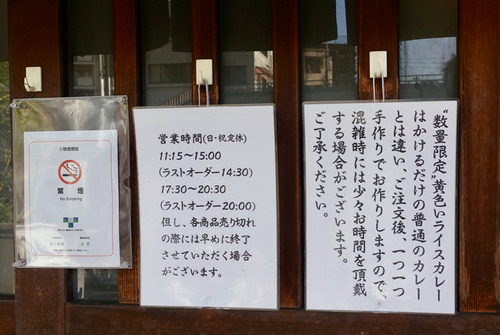 禁煙
No Smoking
営業時間(日・祝定休)
11:15～15:00
(ラストオーダー14:30)
17:30～20:30
(ラストオーダー20:00)
但し、各商品売り切れ
の際には早めに終了
させていただく場合
がございます。
"数量限定"黄色いライスカレー
はかけるだけの普通のカレー
とは違い、ご注文後、一つ一つ
手作りでお作りしますので、
混雑時には少々お時間を頂戴
する場合がございます。
ご了承ください。